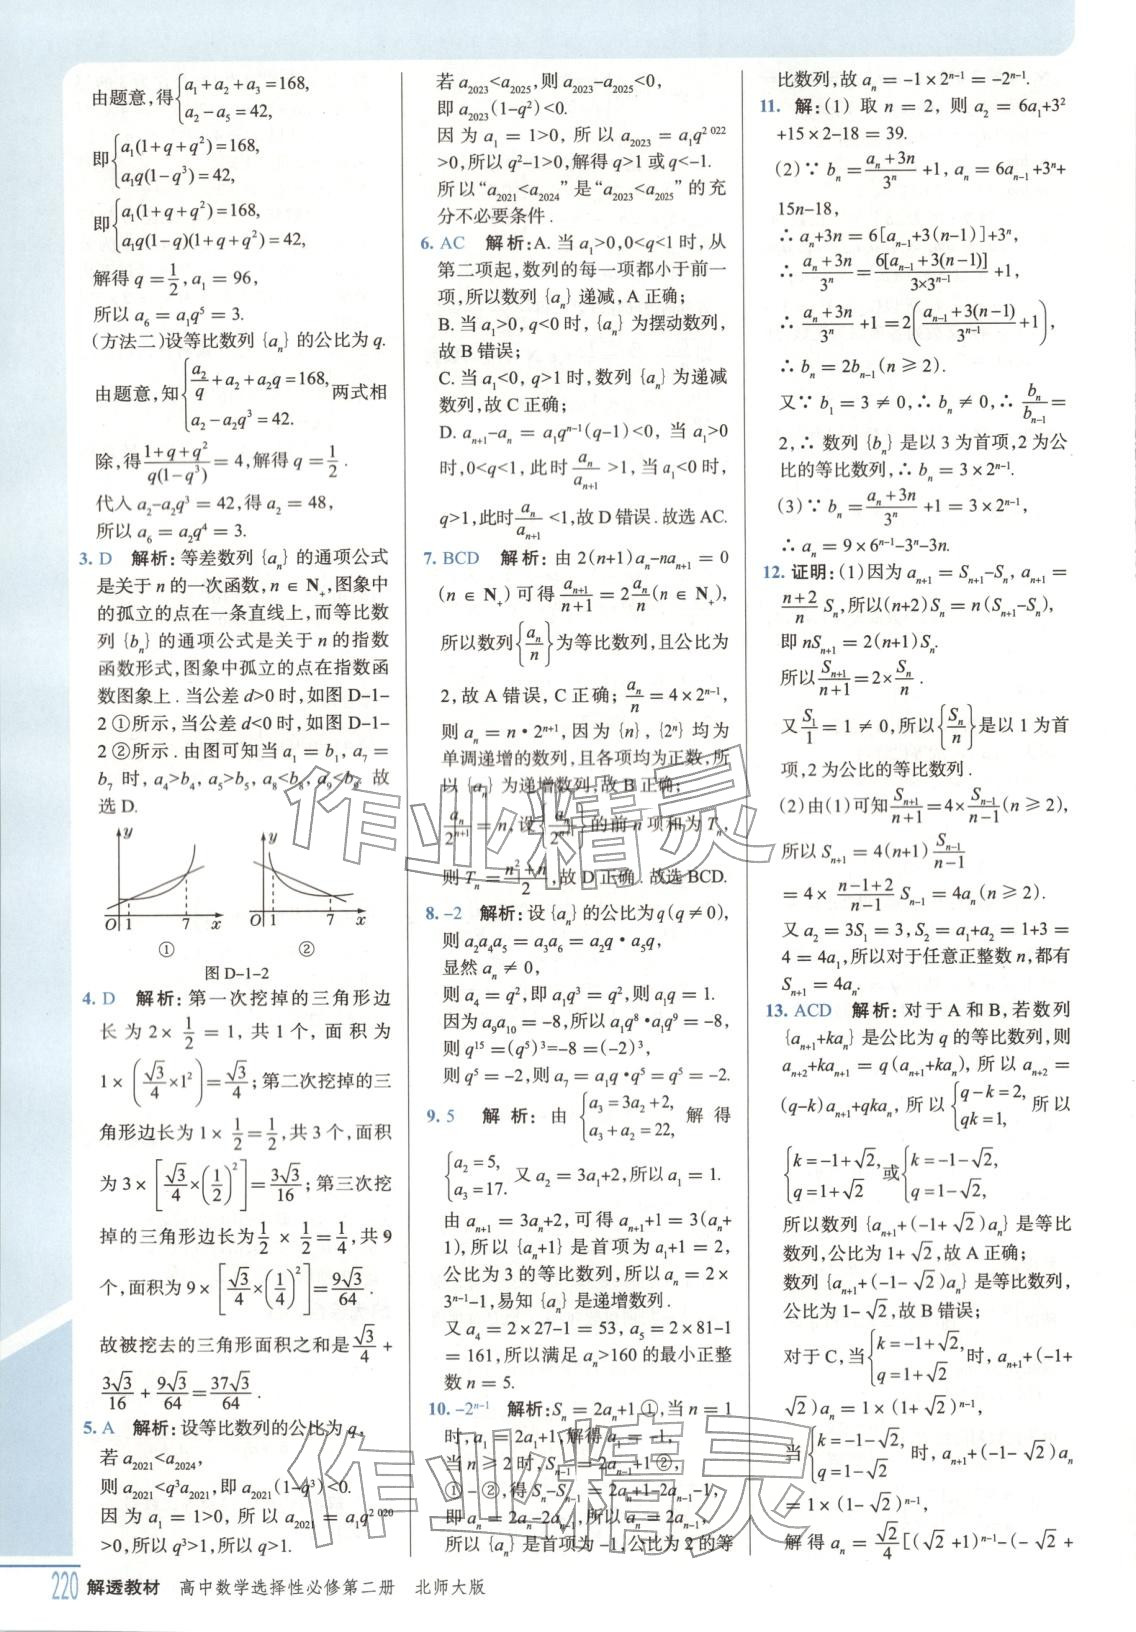 由题意，得{a₁+a₂+a₃=168,
a₂-a₅=42,
即{a₁(1+q+q²)=168,
a₁q(1-q³)=42,
即{a₁(1+q+q²)=168,
a₁q(1-q)(1+q+q²)=42,
解得 q=1/2, a₁=96,
所以 a₆=a₁q⁵=3.
(方法二)设等比数列{aₙ}的公比为 q.
由题意，知{a₂/q+a₂+a₂q=168,
a₂-a₂q³=42. 两式相
除，得(1+q+q²)/(q(1-q³))=4，解得 q=1/2.
代入 a₂-a₂q³=42，得 a₂=48,
所以 a₆=a₂q⁴=3.
3. D 解析：等差数列{aₙ}的通项公式
是关于 n 的一次函数，n∈N₊，图象中
的孤立的点在一条直线上，而等比数
列{bₙ}的通项公式是关于 n 的指数
函数形式，图象中孤立的点在指数函
数图象上．当公差 d>0 时，如图 D-1-
2 ①所示，当公差 d<0 时，如图 D-1-
2 ②所示．由图可知当 a₁=b₁, a₇=
b₇ 时，a₄>b₄, a₅>b₅, a₈<b₈, a₉<b₉. 故
选 D.
y
y
O 1 7 x
O 1 7 x
① ②
图 D-1-2
4. D 解析：第一次挖掉的三角形边
长为 2×1/2=1，共 1 个，面积为
1×(√3/4×1²)=√3/4；第二次挖掉的三
角形边长为 1×1/2=1/2，共 3 个，面积
为 3×[√3/4×(1/2)²]=3√3/16；第三次挖
掉的三角形边长为1/2×1/2=1/4，共 9
个，面积为 9×[√3/4×(1/4)²]=9√3/64.
故被挖去的三角形面积之和是√3/4+
3√3/16+9√3/64=37√3/64.
5. A 解析：设等比数列的公比为 q,
若 a₂₀₂₁<a₂₀₂₄,
则 a₂₀₂₁<q³a₂₀₂₁，即 a₂₀₂₁(1-q³)<0.
因为 a₁=1>0，所以 a₂₀₂₁=a₁q²⁰²⁰
>0，所以 q³>1，所以 q>1.
若 a₂₀₂₃<a₂₀₂₅，则 a₂₀₂₃-a₂₀₂₅<0,
即 a₂₀₂₃(1-q²)<0.
因为 a₁=1>0，所以 a₂₀₂₃=a₁q²⁰²²
>0，所以 q²-1>0，解得 q>1 或 q<-1.
所以“a₂₀₂₁<a₂₀₂₄”是“a₂₀₂₃<a₂₀₂₅”的充
分不必要条件．
6. AC 解析：A. 当 a₁>0, 0<q<1 时，从
第二项起，数列的每一项都小于前一
项，所以数列{aₙ}递减，A 正确；
B. 当 a₁>0, q<0 时，{aₙ}为摆动数列，
故 B 错误；
C. 当 a₁<0, q>1 时，数列{aₙ}为递减
数列，故 C 正确；
D. aₙ₊₁-aₙ=a₁qⁿ⁻¹(q-1)<0，当 a₁>0
时，0<q<1，此时 aₙ/aₙ₊₁>1，当 a₁<0 时，
q>1，此时 aₙ/aₙ₊₁<1，故 D 错误．故选 AC.
7. BCD 解析：由 2(n+1)aₙ-naₙ₊₁=0
(n∈N₊)可得 aₙ₊₁/(n+1)=2aₙ/n(n∈N₊),
所以数列{aₙ/n}为等比数列，且公比为
2，故 A 错误，C 正确；aₙ/n=4×2ⁿ⁻¹,
则 aₙ=n·2ⁿ⁺¹，因为{n}，{2ⁿ}均为
单调递增的数列，且各项均为正数，所
以{aₙ}为递增数列，故 B 正确；
aₙ/2ⁿ⁺¹=n，设{aₙ/2ⁿ⁺¹}的前 n 项和为 Tₙ,
则 Tₙ=(n²+n)/2，故 D 正确．故选 BCD.
8. -2 解析：设{aₙ}的公比为 q(q≠0),
则 a₂a₄a₅=a₃a₆=a₂q·a₅q,
显然 aₙ≠0,
则 a₄=q²，即 a₁q³=q²，则 a₁q=1.
因为 a₉a₁₀=-8，所以 a₁q⁸·a₁q⁹=-8,
则 q¹⁵=(q⁵)³=-8=(-2)³,
则 q⁵=-2，则 a₇=a₁q·q⁵=q⁵=-2.
9. 5 解析：由{a₃=3a₂+2,
a₃+a₂=22, 解得
{a₂=5,
a₃=17. 又 a₂=3a₁+2，所以 a₁=1.
由 aₙ₊₁=3aₙ+2，可得 aₙ₊₁+1=3(aₙ+
1)，所以{aₙ+1}是首项为 a₁+1=2,
公比为 3 的等比数列，所以 aₙ=2×
3ⁿ⁻¹-1，易知{aₙ}是递增数列．
又 a₄=2×27-1=53, a₅=2×81-1
=161，所以满足 aₙ>160 的最小正整
数 n=5.
10. -2ⁿ⁻¹ 解析：Sₙ=2aₙ+1 ①，当 n=1
时，a₁=2a₁+1，解得 a₁=-1,
当 n≥2 时，Sₙ₋₁=2aₙ₋₁+1 ②,
①-②，得 Sₙ-Sₙ₋₁=2aₙ+1-2aₙ₋₁-1,
即 aₙ=2aₙ-2aₙ₋₁，即 aₙ=2aₙ₋₁,
所以{aₙ}是首项为-1，公比为 2 的等
比数列，故 aₙ=-1×2ⁿ⁻¹=-2ⁿ⁻¹.
11. 解：(1) 取 n=2，则 a₂=6a₁+3²
+15×2-18=39.
(2)∵ bₙ=(aₙ+3n)/3ⁿ+1, aₙ=6aₙ₋₁+3ⁿ+
15n-18,
∴ aₙ+3n=6[aₙ₋₁+3(n-1)]+3ⁿ,
∴ (aₙ+3n)/3ⁿ=6[aₙ₋₁+3(n-1)]/(3×3ⁿ⁻¹)+1,
∴ (aₙ+3n)/3ⁿ+1=2((aₙ₋₁+3(n-1))/3ⁿ⁻¹+1),
∴ bₙ=2bₙ₋₁(n≥2).
又∵ b₁=3≠0, ∴ bₙ≠0, ∴ bₙ/bₙ₋₁=
2, ∴ 数列{bₙ}是以 3 为首项，2 为公
比的等比数列，∴ bₙ=3×2ⁿ⁻¹.
(3)∵ bₙ=(aₙ+3n)/3ⁿ+1=3×2ⁿ⁻¹,
∴ aₙ=9×6ⁿ⁻¹-3ⁿ-3n.
12. 证明：(1)因为 aₙ₊₁=Sₙ₊₁-Sₙ, aₙ₊₁=
(n+2)/n Sₙ，所以(n+2)Sₙ=n(Sₙ₊₁-Sₙ),
即 nSₙ₊₁=2(n+1)Sₙ.
所以 Sₙ₊₁/(n+1)=2×Sₙ/n.
又 S₁/1=1≠0，所以{Sₙ/n}是以 1 为首
项，2 为公比的等比数列．
(2)由(1)可知 Sₙ₊₁/(n+1)=4×Sₙ₋₁/(n-1)(n≥2),
所以 Sₙ₊₁=4(n+1)Sₙ₋₁/(n-1)
=4×(n-1+2)/(n-1) Sₙ₋₁=4aₙ(n≥2).
又 a₂=3S₁=3, S₂=a₁+a₂=1+3=
4=4a₁，所以对于任意正整数 n，都有
Sₙ₊₁=4aₙ.
13. ACD 解析：对于 A 和 B，若数列
{aₙ₊₁+kaₙ}是公比为 q 的等比数列，则
aₙ₊₂+kaₙ₊₁=q(aₙ₊₁+kaₙ)，所以 aₙ₊₂=
(q-k)aₙ₊₁+qkaₙ，所以{q-k=2,
qk=1, 所以
{k=-1+√2,
q=1+√2 或{k=-1-√2,
q=1-√2,
所以数列{aₙ₊₁+(-1+√2)aₙ}是等比
数列，公比为 1+√2，故 A 正确；
数列{aₙ₊₁+(-1-√2)aₙ}是等比数列，
公比为 1-√2，故 B 错误；
对于 C，当{k=-1+√2,
q=1+√2 时，aₙ₊₁+(-1+
√2)aₙ=1×(1+√2)ⁿ⁻¹,
当{k=-1-√2,
q=1-√2 时，aₙ₊₁+(-1-√2)aₙ
=1×(1-√2)ⁿ⁻¹,
解得 aₙ=√2/4[(√2+1)ⁿ⁻¹-(-√2+
作业精灵
作业精灵
220 解透教材 高中数学选择性必修第二册 北师大版